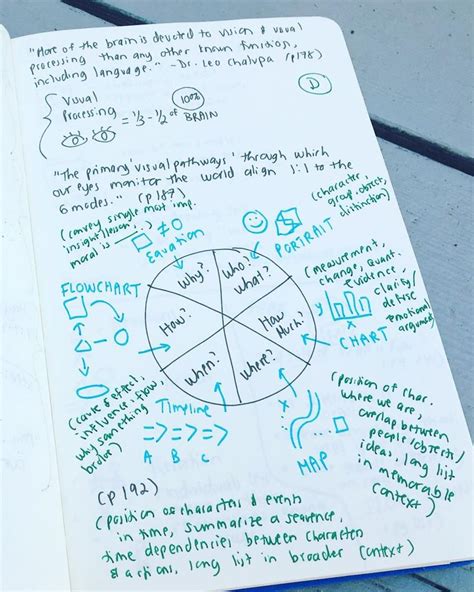 "More of the brain is devoted to vision & visual
processing than any other known function,
including language." - Dr. Leo Chalupa (p178)
D
Visual
Processing
= 1/3 - 1/2 of
100%
BRAIN
"The primary 'visual pathways' through which
our eyes monitor the world align 1:1 to the
6 modes." (p187)
(convey single most imp.
insight/lesson
moral is
≠ 0
Equation
(character,
group, object,
distinction)
PORTRAIT
Why?
Who?
What?
How
Much?
Where?
When?
How?
FLOWCHART
(cause & effect,
influence, flow,
why something
broke)
(measurement,
change, quant.
evidence,
clarify/
defuse
emotional
argument)
y
x
CHART
Timeline
=> => =>
A B C
x
MAP
(position of char.
where we are,
overlap between
people/objects/
ideas, long list
in memorable
context)
(p192)
(position of characters & events
in time, summarize a sequence,
time dependencies between characters
& actions, long list in broader context)